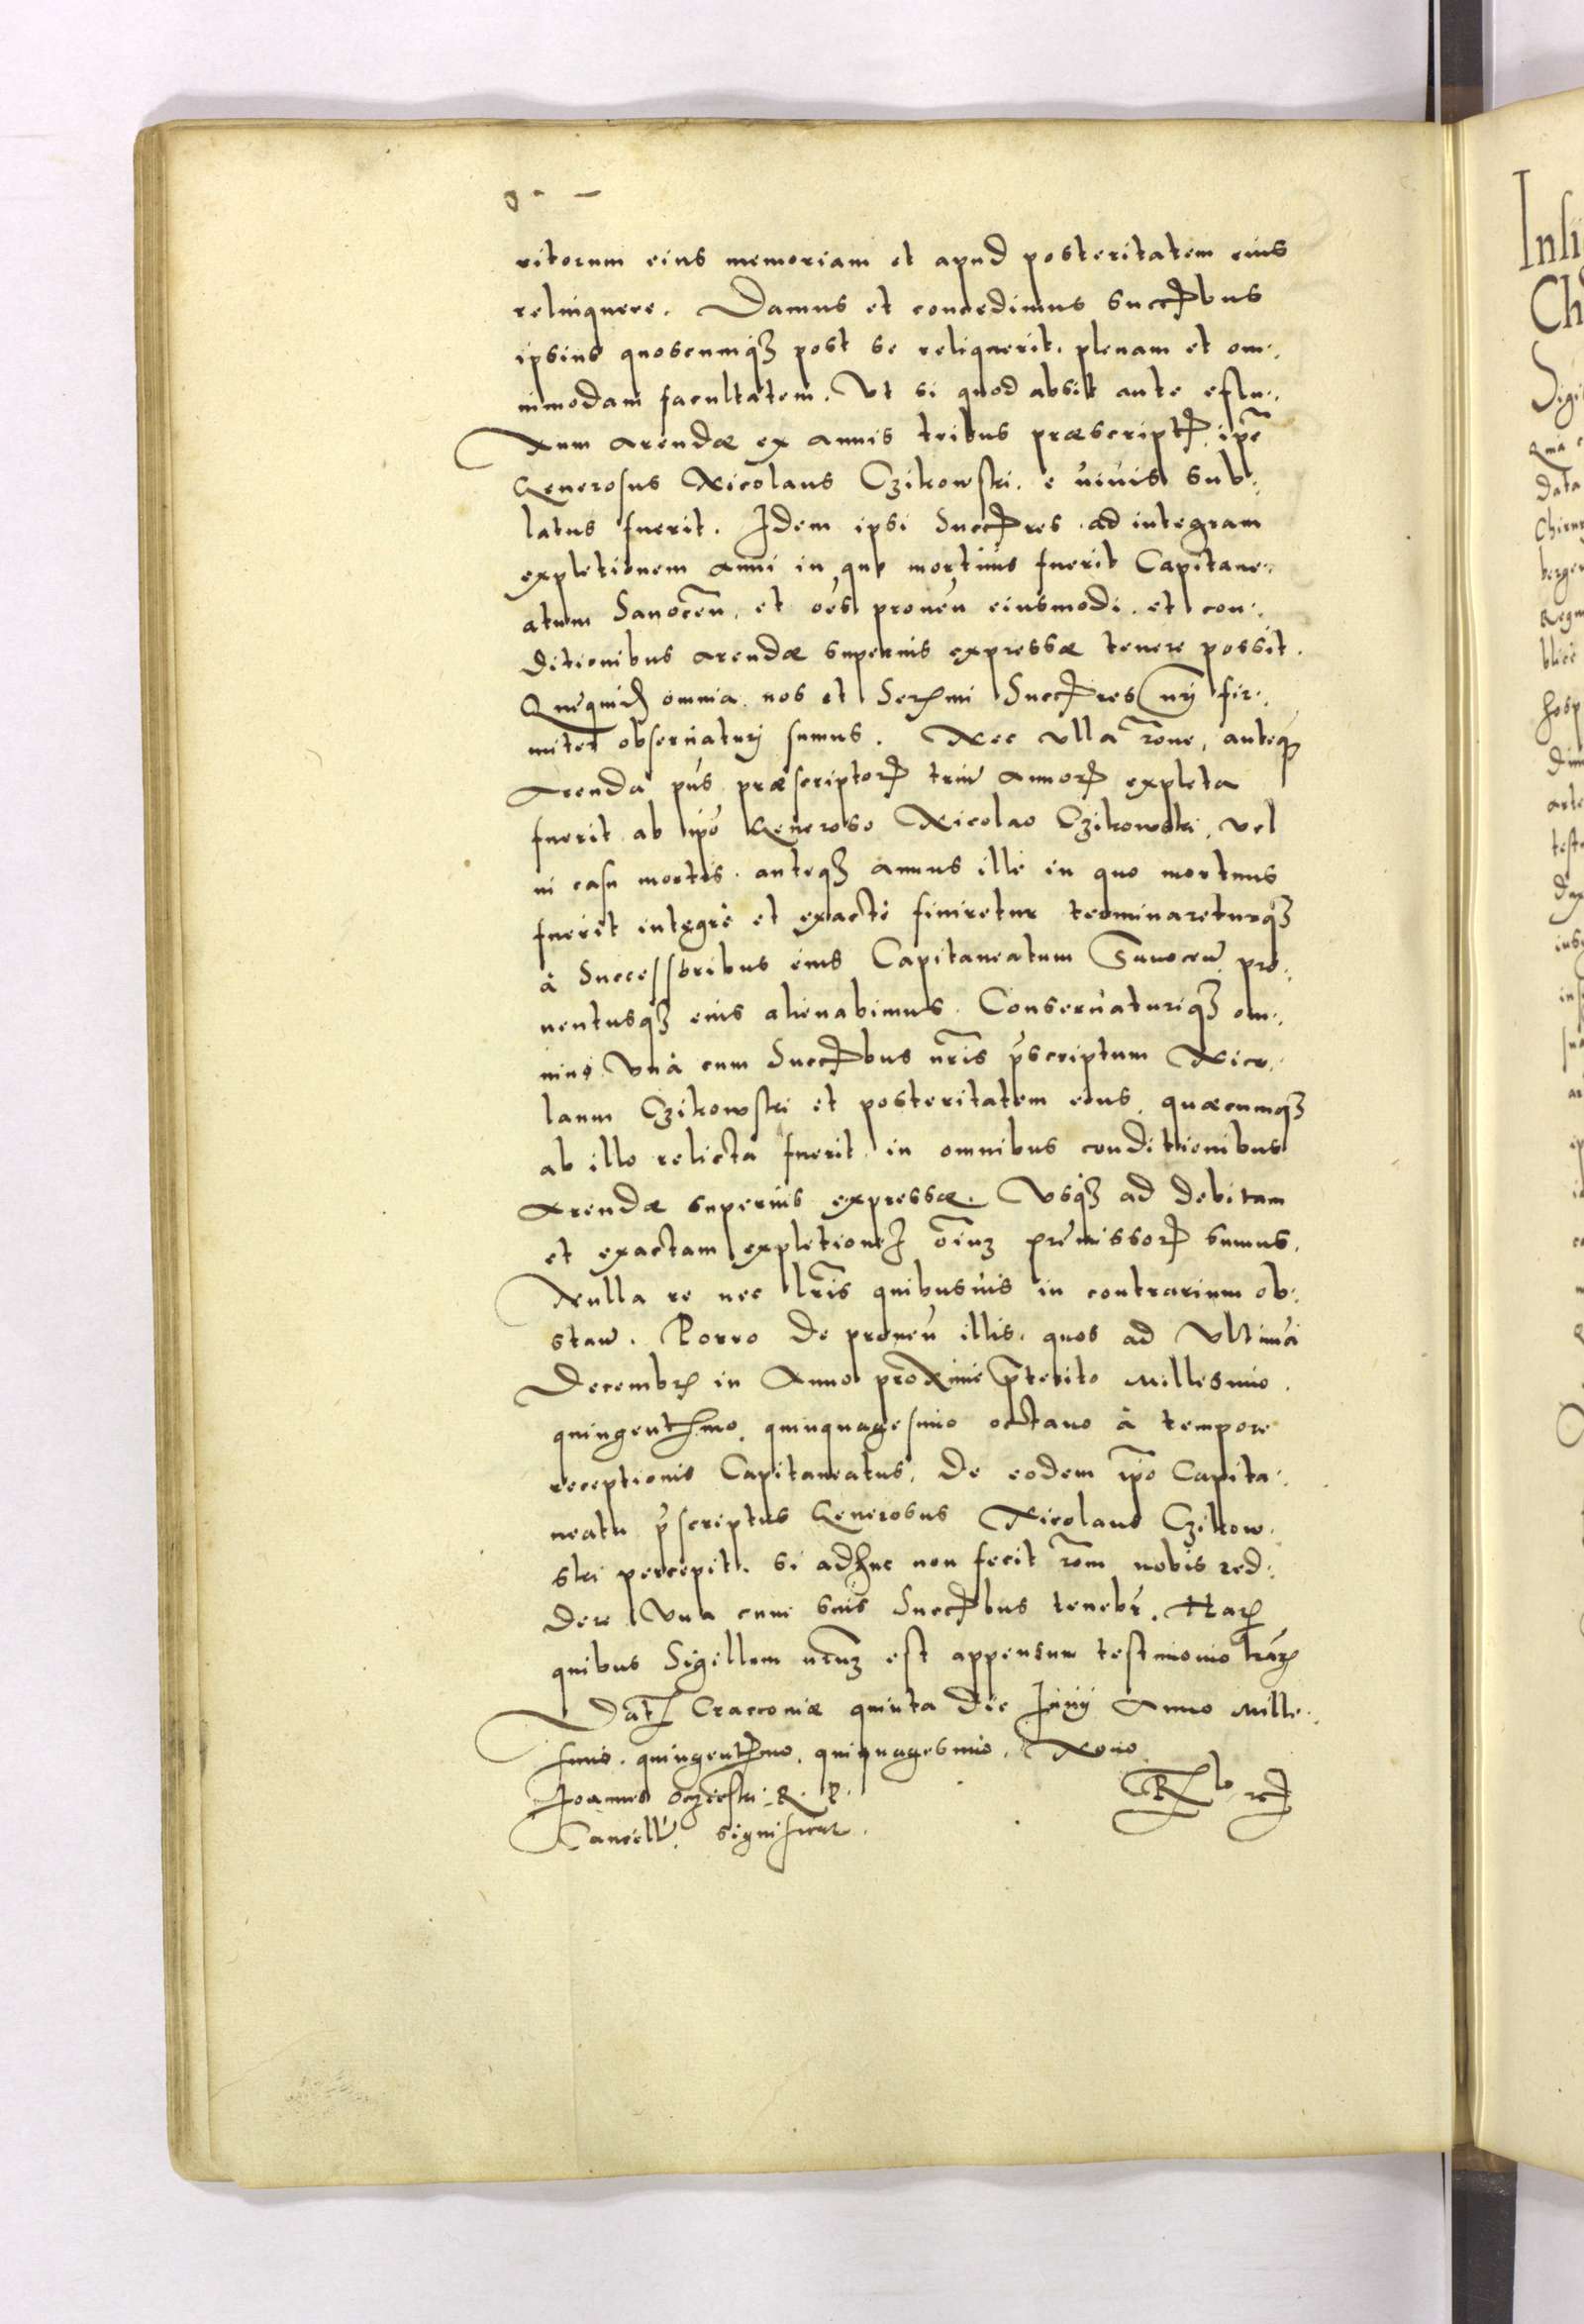 ritorum eius memoriam et apud posteritatem eius
relinquere. Damus et concedimus Succꝝbus
ipsius quoscumqꝫ post se reliquerit. plenam et om:
nimodam facultatem. Vt si quod absit ante eflu:
xum arendæ ex annis tribus præscriptꝝ ip̃e
Generosus Nicolaus Czikowski. e viuis sub:
latus fuerit. Idem ipsi Succꝝres ad integram
expletionem anni in quo mortuus fuerit Capitane:
atum Sanoceñ. et oẽs proueñ eiusmodi. et con:
ditionibus arendæ superius expressæ tenere possit.
Quequidꝫ omnia nos et Serꝫmi Succꝝres nr̃i fir:
miter obseruaturi sumus. Nec vlla rõne, anteqꝫ
Arenda pũs præscriptoꝝ triũ annoꝝ expleta
fuerit ab ip̃o Generoso Nicolao Czikowski, vel
in casu mortis. anteqꝫ annus ille in quo mortuus
fuerit integrè et exactè finiretur terminareturqꝫ
à Successoribus eius Capitaneatum Sanoceñ. pro:
uentusqꝫ eius alienabimus. Conseruaturiqꝫ om:
nino vnà cum Succꝝbus nr̃is p̃scriptum Nico:
laum Czikowski et posteritatem eius, quæcumqꝫ
ab illo relicta fuerit in omnibus conditionibus
Arendæ superius expressæ. Vsqꝫ ad debitam
et exactam expletionẽ oĩuꝫ premissoꝝ sumus.
Nulla re nec lr̃is quibusuis in contrarium ob:
stañ. Porro de proueñ illis. quos ad vltimã
Decembrꝫ in Anno proxime p̃terito Millesimo.
quingentꝫmo, quinquagesimo octauo à tempore
receptionis Capitaneatus. de eodem ip̃o Capita:
neatu p̃scriptus Generosus Nicolaus Czikow:
ski percepit. si adhuc non fecit rõm nobis red:
dere vna cum suis Succꝝbus tenebr̃. Harꝫ
quibus Sigillum nr̃uꝫ est appensum testimonio lr̃arꝫ
Datꝫ Cracouiæ quinta die Iunij Anno Mille:
simo. quingentꝫmo. quiquagesimo. Nono
Ioannes Oczieski R. P.
Cancellr̃. significat.